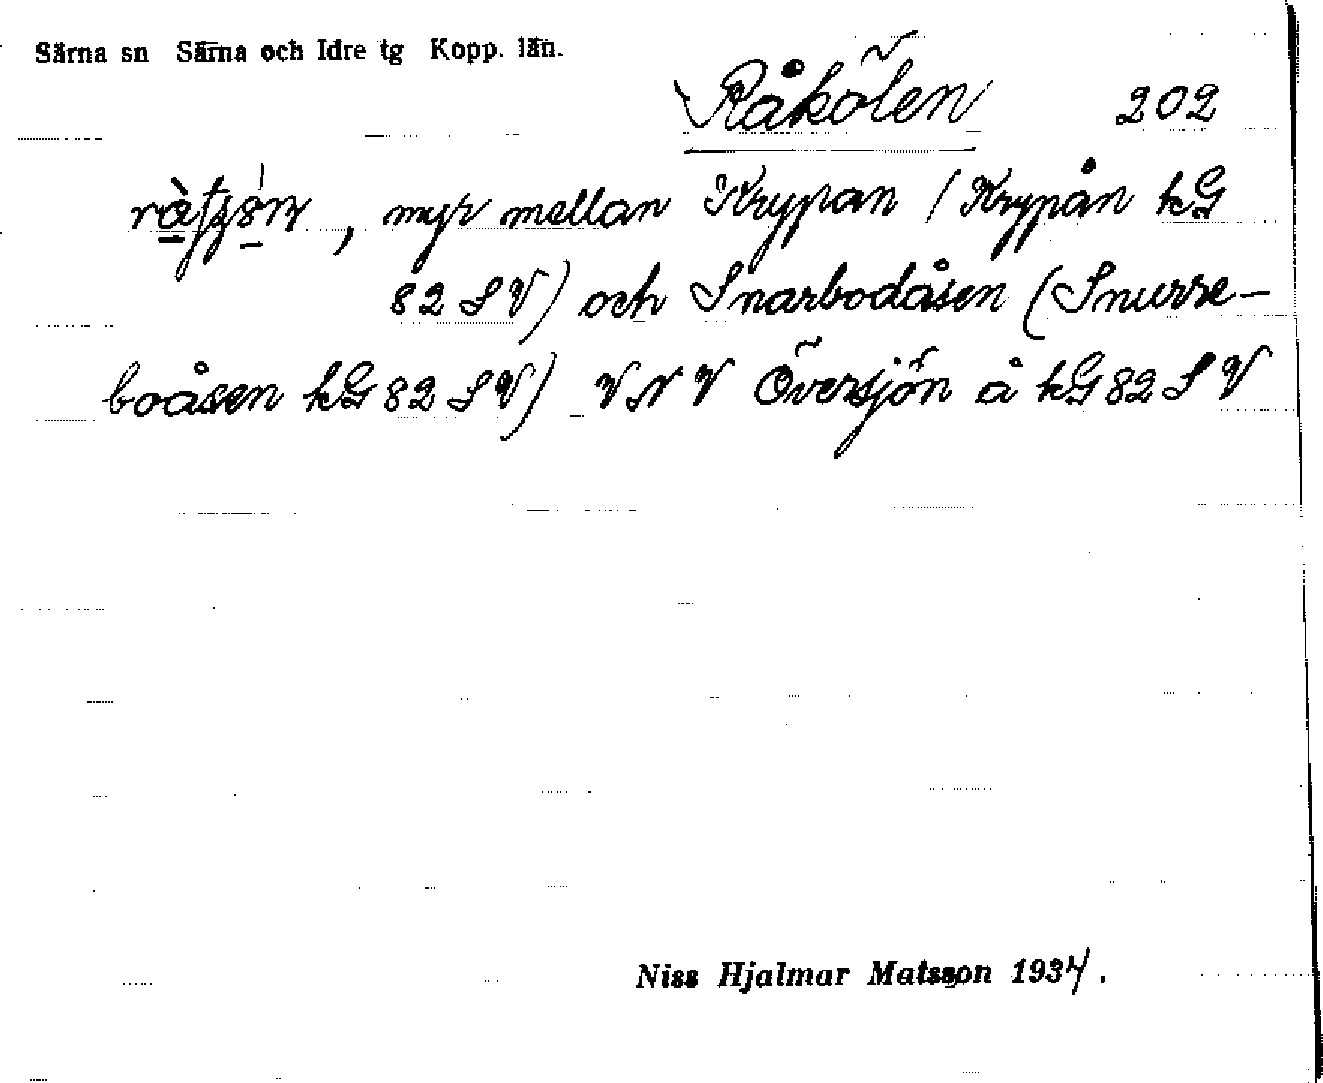 Särna sn Särna och Idre tg Kopp. län.
Råkölen 202
, myr mellan Krypan (Krypån kG
82 SV) och Snarbodåsen (Snurre-
boåsen kG 82 SV) VNV Översjön å kG 82 SV
Niss Hjalmar Matsson 1934.